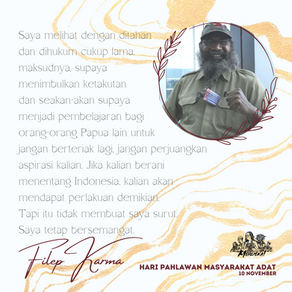 Saya melihat dengan ditahan
dan dihukum cukup lama,
maksudnya, supaya
menimbulkan ketakutan
dan seakan-akan supaya
menjadi pembelajaran bagi
orang-orang Papua lain untuk
jangan berteriak lagi, jangan perjuangkan
aspirasi kalian. Jika kalian berani
menentang Indonesia, kalian akan
mendapat perlakuan demikian.
Tapi itu tidak membuat saya surut.
Saya tetap bersemangat.
Filep Karma
HARI PAHLAWAN MASYARAKAT ADAT
10 NOVEMBER